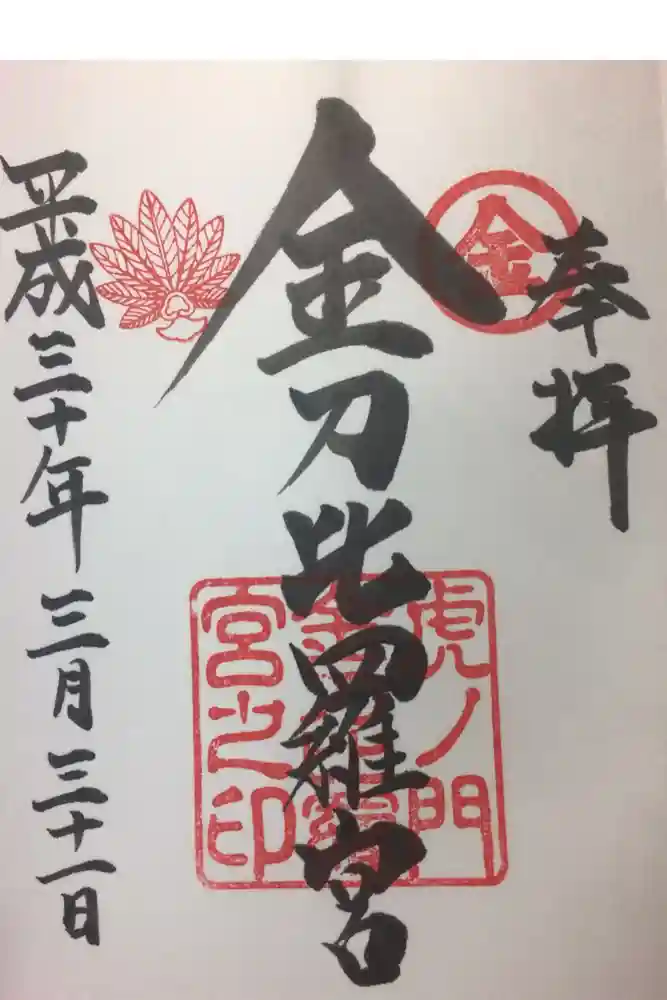 奉拝
金
金刀比羅宮
虎ノ門
宮之印
平成三十年三月三十一日